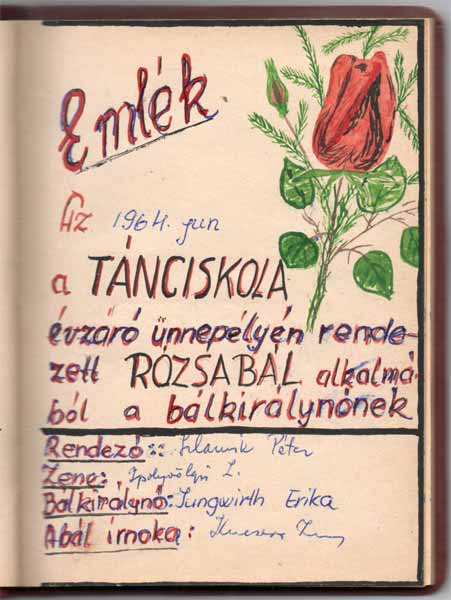 Emlék
Az 1964. jun
a TÁNCISKOLA
évzáró ünnepélyén rende-
zett RÓZSABÁL alkalmá-
ból a bálkirálynőnek
Rendező:: Péter
Zene: L.
Bálkirálynő: Jungwirth Erika
A bál írnoka: